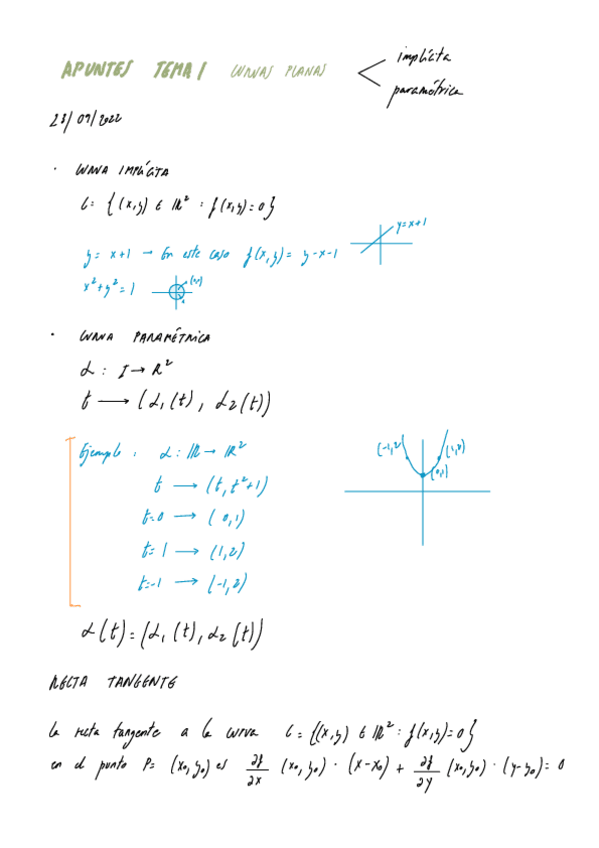 APUNTES TEMA 1 CURVAS PLANAS
implícita
paramétrica
23/09/2022
· CURVA IMPLÍCITA
C = {(x,y) ∈ ℝ² : f(x,y)=0}
y = x+1 → En este caso f(x,y) = y-x-1
y=x+1
x²+y²=1
· CURVA PARAMÉTRICA
α : I → ℝ²
t ⟶ (α₁(t), α₂(t))
Ejemplo: α: ℝ → ℝ²
t ⟶ (t, t²+1)
t=0 ⟶ (0,1)
t=1 ⟶ (1,2)
t=-1 ⟶ (-1,2)
(-1,2)
(1,2)
(0,1)
α(t) = (α₁(t), α₂(t))
RECTA TANGENTE
La recta tangente a la curva C = {(x,y) ∈ ℝ² : f(x,y)=0}
en el punto P = (x₀,y₀) es ∂f/∂x (x₀,y₀) · (x-x₀) + ∂f/∂y (x₀,y₀) · (y-y₀) = 0